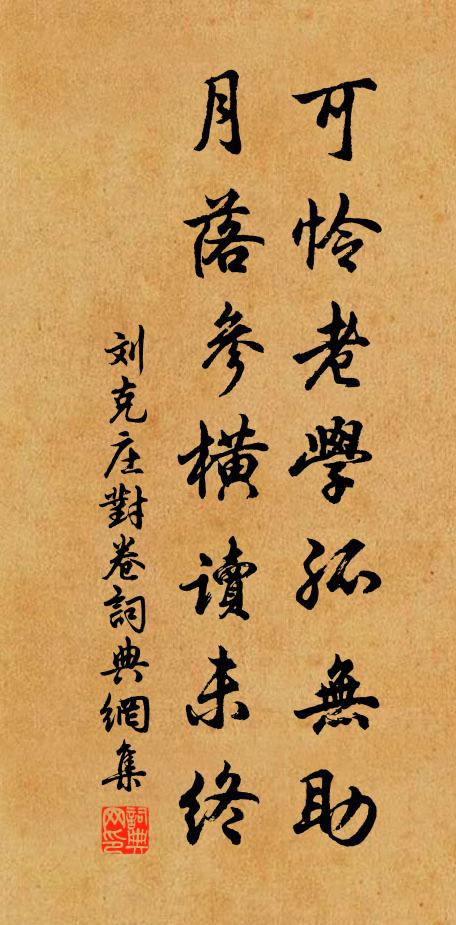 可怜老學孤無助
月落參橫讀未終
刘克庄對卷詞典網集
詞典网印